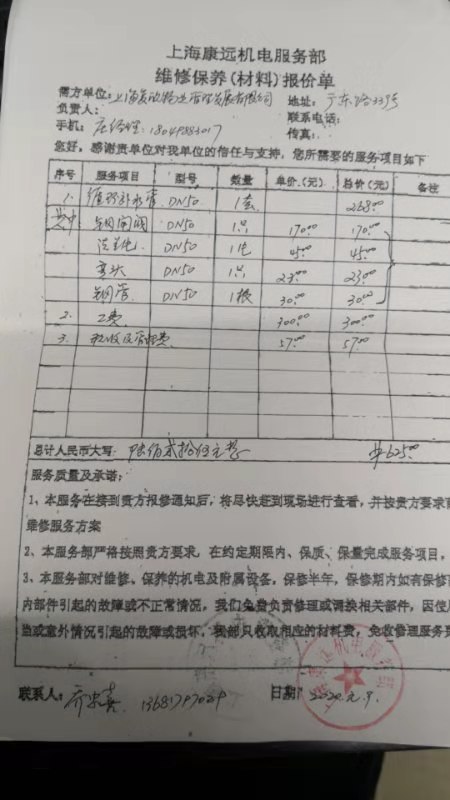 上海康远机电服务部
维修保养(材料)报价单
需方单位: 上海 地址: 广东路339号
负责人: 联系电话:
手机: 庄经理 传真:
您好,感谢贵单位对我单位的信任与支持,您所需要的服务项目如下
序号 服务项目 型号 数量 单价(元) 总价(元) 备注
1. 水管 DN50 1套 268.00
其中 铜闸阀 DN50 1只 170.00 170.00
法兰 DN50 45.00 45.00
弯头 DN50 1只 23.00 23.00
钢管 DN50 1根 30.00 30.00
2. 工费 300.00 300.00
3. 税收及管理费 57.00 57.00
总计人民币大写: 陆佰贰拾伍元整 ¥625.00
服务质量及承诺:
1、本服务在接到贵方报修通知后,将尽快赶到现场进行查看,并按贵方要求
维修服务方案
2、本服务部严格按照贵方要求,在约定期限内、保质、保量完成服务项目。
3、本服务部对维修、保养的机电及附属设备,保修半年,保修期内如有保修
内部件引起的故障或不正常情况,我们免费负责修理或调换相关部件,因使
当或意外情况引起的故障或损坏,我部只收取相应的材料费,免收修理服务
联系人: 日期: 2020.9.
康远机电服务部